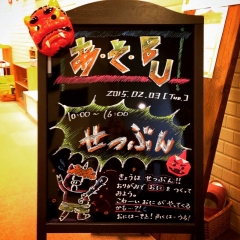 あ・そ・ぼ
2015.02.03 [Tue.]
10:00～16:00
せつぶん
きょうは せつぶん!!
おりがみで おに を つくって
みよう。
こわーい おに が やってくる
から～!?
おにはーそと! ふくはーうち!